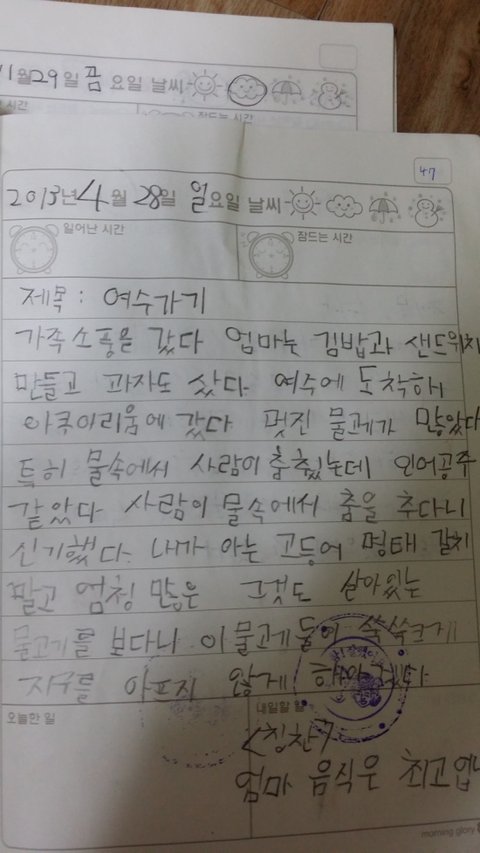 월 29일 금 요일 날씨
시간
잠드는 시간
47
2013년 4월 28일 일요일 날씨
일어난 시간
잠드는 시간
제목 : 여수가기
가족소풍을 갔다 엄마는 김밥과 샌드위치
만들고 과자도 샀다. 여수에 도착하
아쿠아리움에 갔다 멋진 물고기가 많았다
특히 물속에서 사람이 춤췄는데 인어공주
같았다 사람이 물속에서 춤을 추다니
신기했다. 내가 아는 고등어 명태 갈치
말고 엄청 많은 그것도 살아있는
물고기를 보다니 이 물고기들이 쑥쑥크게
지구를 아프지 않게 해야겠다
오늘한 일
내일할 일
<칭찬>
엄마 음식은 최고
morning glory